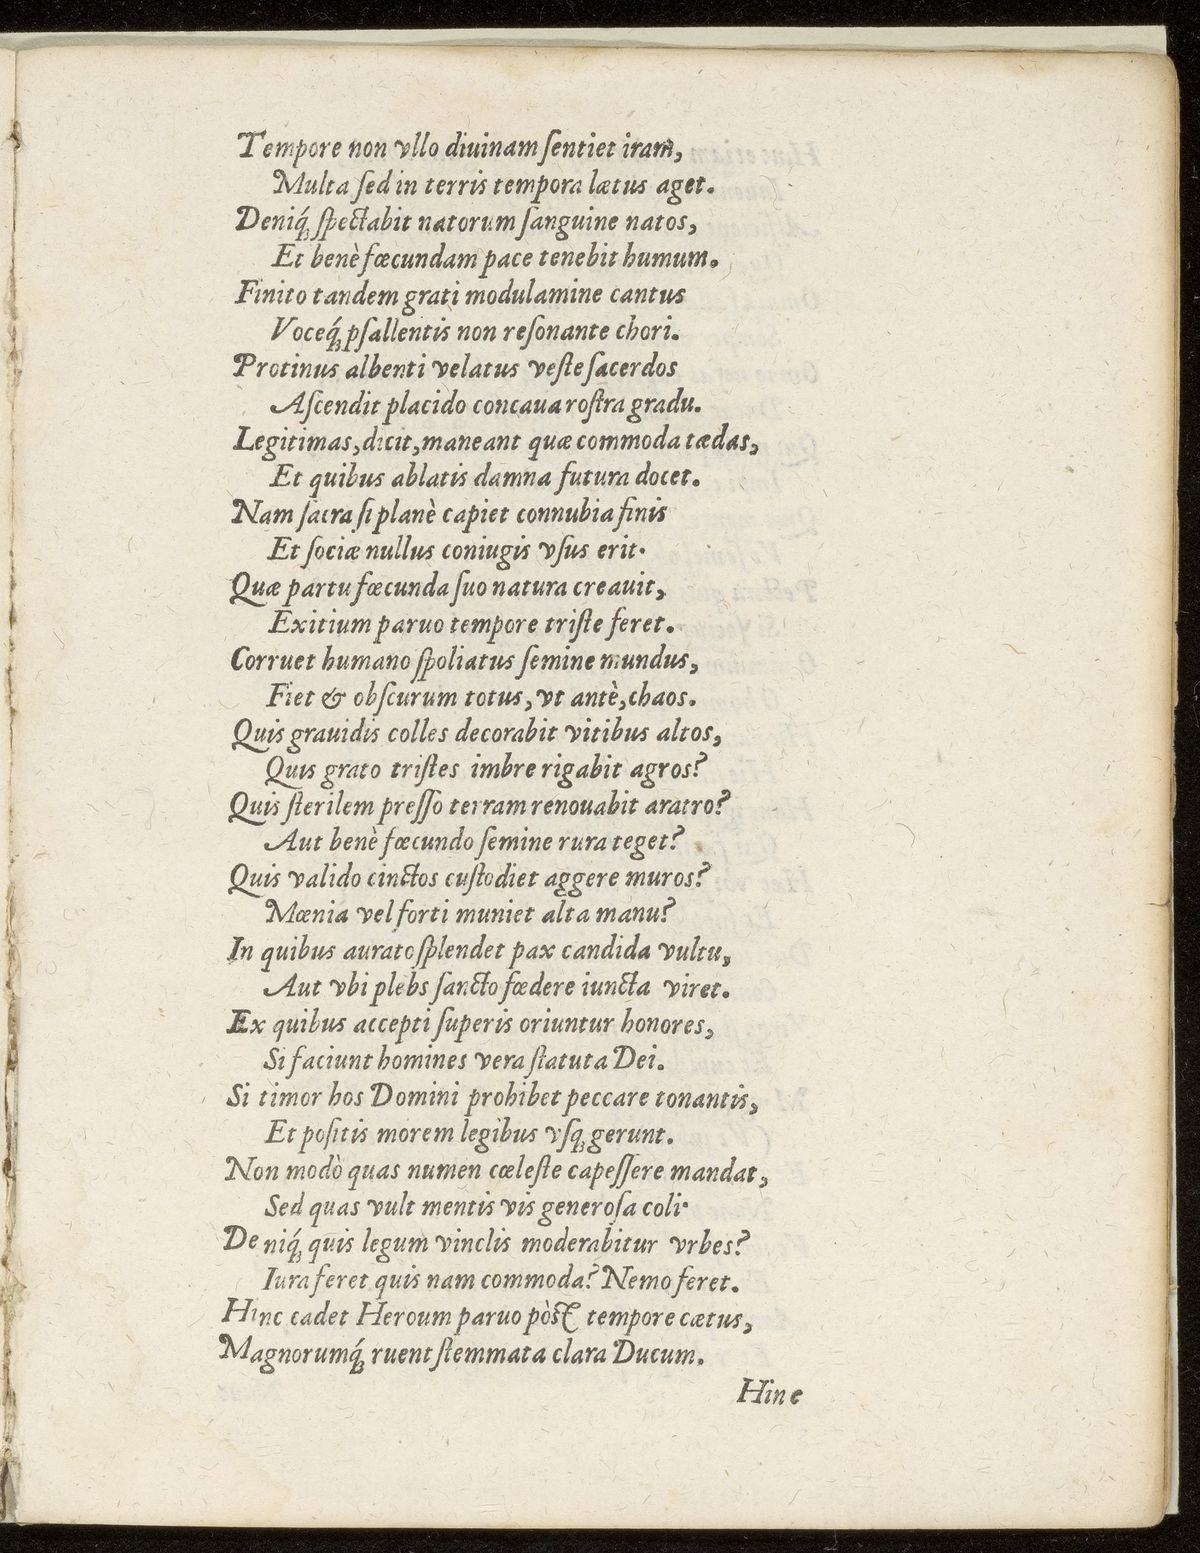 Tempore non vllo diuinam ſentiet iram,
Multa ſed in terris tempora lætus aget.
Deniq́ꝫ ſpectabit natorum ſanguine natos,
Et benè fœcundam pace tenebit humum.
Finito tandem grati modulamine cantus
Voceq́ꝫ pſallentis non reſonante chori.
Protinus albenti velatus veſte ſacerdos
Aſcendit placido concaua roſtra gradu.
Legitimas, dicit, maneant quæ commoda tædas,
Et quibus ablatis damna futura docet.
Nam ſacra ſi planè capiet connubia finis
Et ſociæ nullus coniugis vſus erit.
Quæ partu fœcunda ſuo natura creauit,
Exitium paruo tempore triſte feret.
Corruet humano ſpoliatus ſemine mundus,
Fiet & obſcurum totus, vt antè, chaos.
Quis grauidis colles decorabit vitibus altos,
Quis grato triſtes imbre rigabit agros?
Quis ſterilem preſſo terram renouabit aratro?
Aut benè fœcundo ſemine rura teget?
Quis valido cinctos cuſtodiet aggere muros?
Mœnia vel forti muniet alta manu?
In quibus aurato ſplendet pax candida vultu,
Aut vbi plebs ſancto fœdere iuncta viret.
Ex quibus accepti ſuperis oriuntur honores,
Si faciunt homines vera ſtatuta Dei.
Si timor hos Domini prohibet peccare tonantis,
Et poſitis morem legibus vſqꝫ gerunt.
Non modò quas numen cœleſte capeſſere mandat,
Sed quas vult mentis vis generoſa coli.
Deniq́ꝫ quis legum vinclis moderabitur vrbes?
Iura feret quis nam commoda? Nemo feret.
Hinc cadet Heroum paruo pòſt tempore cætus,
Magnorumq́ꝫ ruent ſtemmata clara Ducum.
Hinc